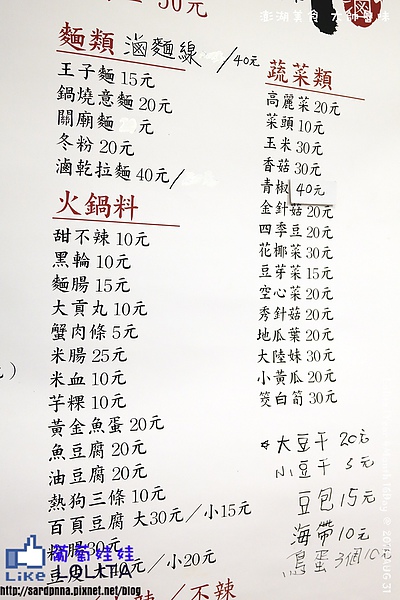 50元
澎湖美食 大師鹽味
麵類 滷麵線 /40元
王子麵 15元
鍋燒意麵 20元
關廟麵 元
冬粉 20元
滷乾拉麵 40元/
火鍋料
甜不辣 10元
黑輪 10元
麵腸 15元
大貢丸 10元
蟹肉條 5元
米腸 25元
米血 10元
芋粿 10元
黃金魚蛋 20元
魚豆腐 20元
油豆腐 20元
熱狗三條 10元
百頁豆腐 大30元/小15元
30元
豆皮 大 元/小20元
/不辣
蔬菜類
高麗菜 20元
菜頭 10元
玉米 30元
香菇 30元
青椒 40元
金針菇 20元
四季豆 20元
花椰菜 30元
豆芽菜 15元
空心菜 20元
秀針菇 20元
地瓜葉 20元
大陸妹 30元
小黃瓜 20元
筊白筍 30元
大豆干 20元
小豆干 5元
豆包 15元
海帶 10元
鳥蛋3個10元
Like 葡萄娃娃
LOLITA
http://sardpnna.pixnet.net/blog